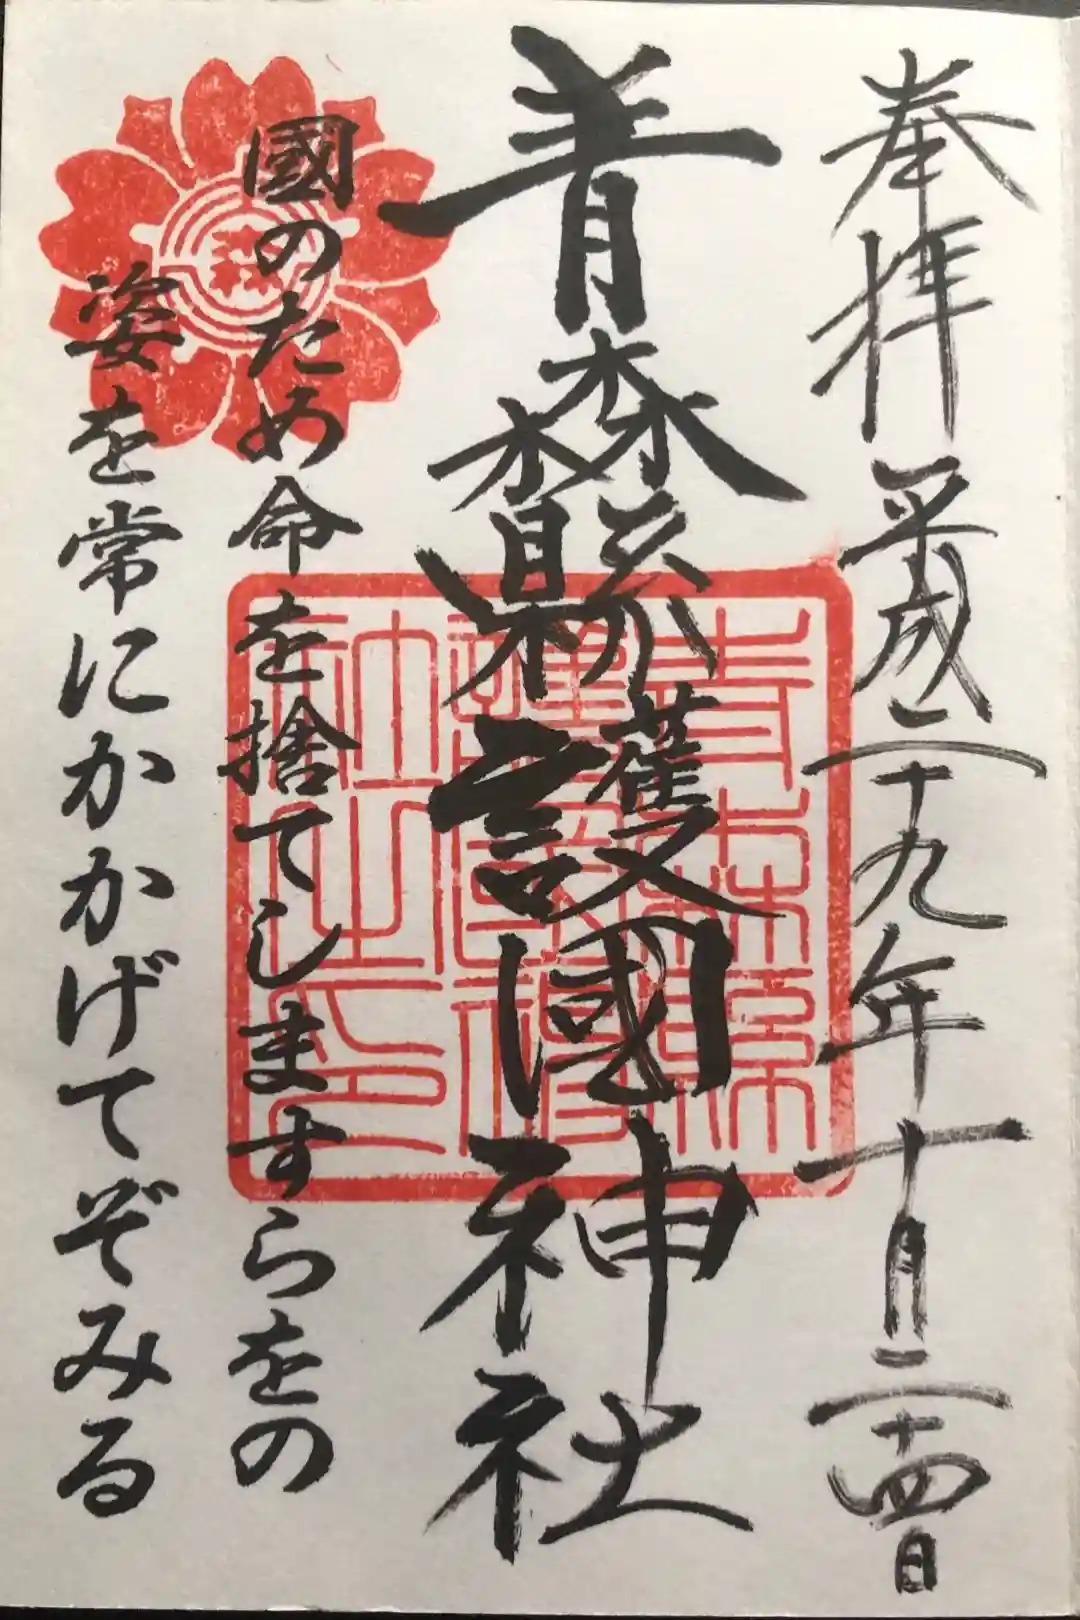 奉拝 平成二十九年十月二十四日
青森縣護國神社
國のため命を捨てしますらをの
姿を常にかかげてぞみる
青森縣
護國神
社之印